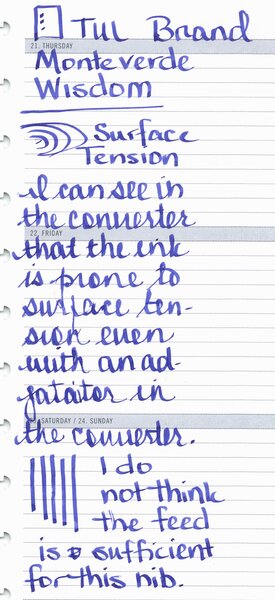 TUL Brand
21. THURSDAY
Monteverde
Wisdom
Surface
Tension
I can see in
the converter
22. FRIDAY
that the ink
is prone to
surface ten-
sion even
with an ad-
jatator in
SATURDAY / 24. SUNDAY
the converter.
I do
not think
the feed
is sufficient
for this nib.